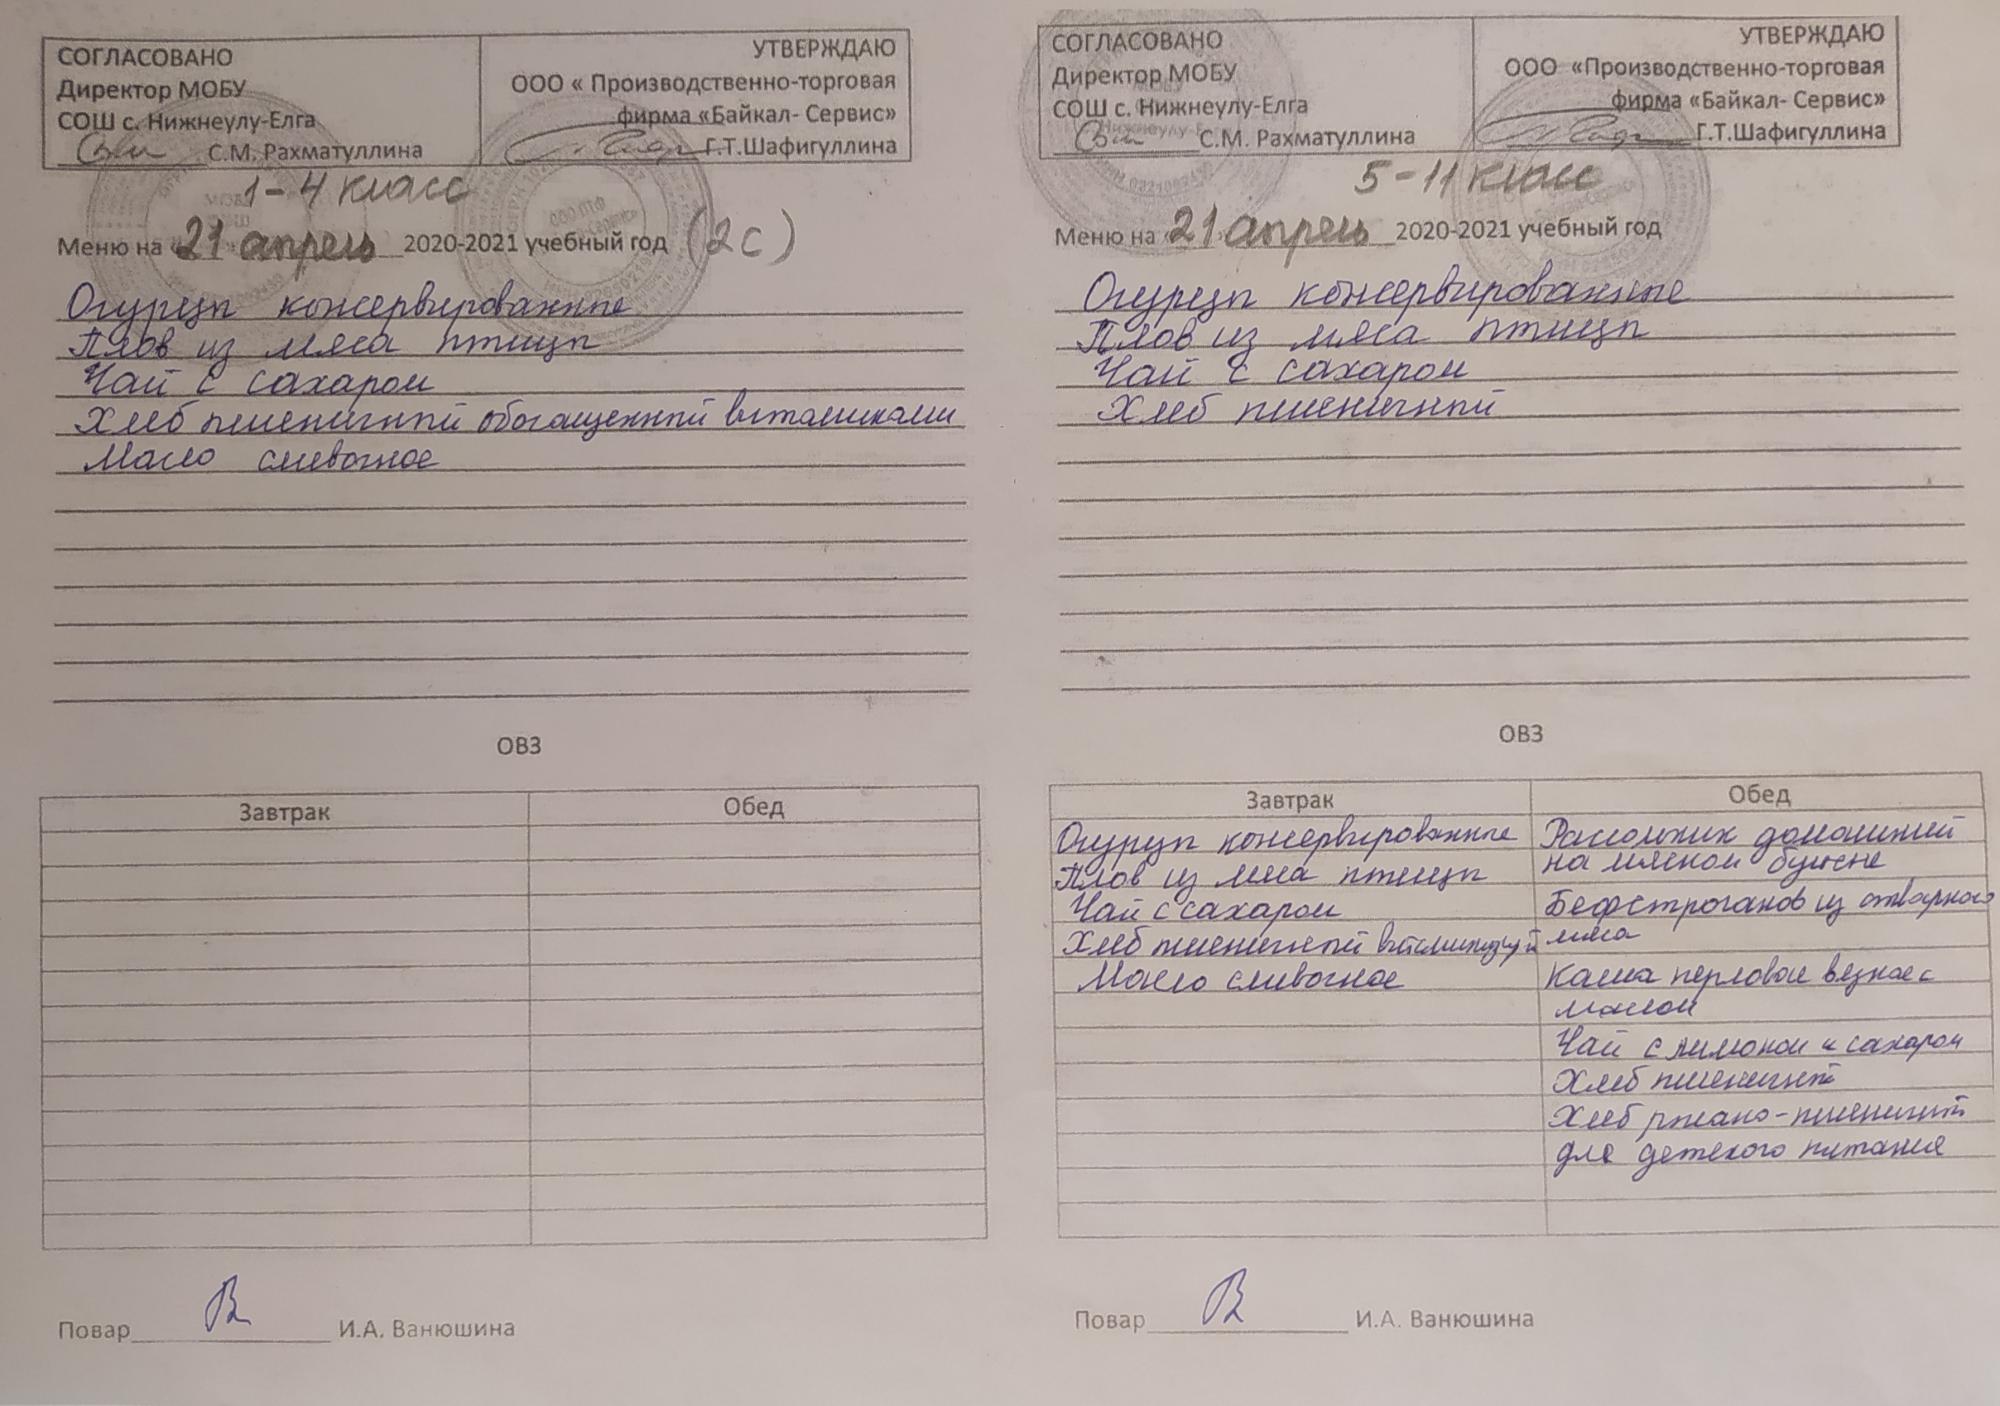 СОГЛАСОВАНО
Директор МОБУ
СОШ с. Нижнеулу-Елга
С.М. Рахматуллина
УТВЕРЖДАЮ
ООО « Производственно-торговая
фирма «Байкал- Сервис»
Г.Т.Шафигуллина
1-4 класс
Меню на «21 апрель 2020-2021 учебный год (2с)
Огурцы консервированные
Плов из мяса птицы
Чай с сахаром
Хлеб пшеничный обогащенный витаминами
Масло сливочное
ОВЗ
Завтрак Обед
Повар И.А. Ванюшина
СОГЛАСОВАНО
Директор МОБУ
СОШ с. Нижнеулу-Елга
С.М. Рахматуллина
УТВЕРЖДАЮ
ООО «Производственно-торговая
фирма «Байкал- Сервис»
Г.Т.Шафигуллина
5-11 класс
Меню на «21 апрель 2020-2021 учебный год
Огурцы консервированные
Плов из мяса птицы
Чай с сахаром
Хлеб пшеничный
ОВЗ
Завтрак
Огурцы консервированные
Плов из мяса птицы
Чай с сахаром
Хлеб пшеничный
Масло сливочное
Обед
Рассольник домашний
на мясном бульоне
Бефстроганов из отварного
мяса
Каша перловая вязкая с
маслом
Чай с лимоном и сахаром
Хлеб пшеничный
Хлеб ржано-пшеничный
для детского питания
Повар И.А. Ванюшина